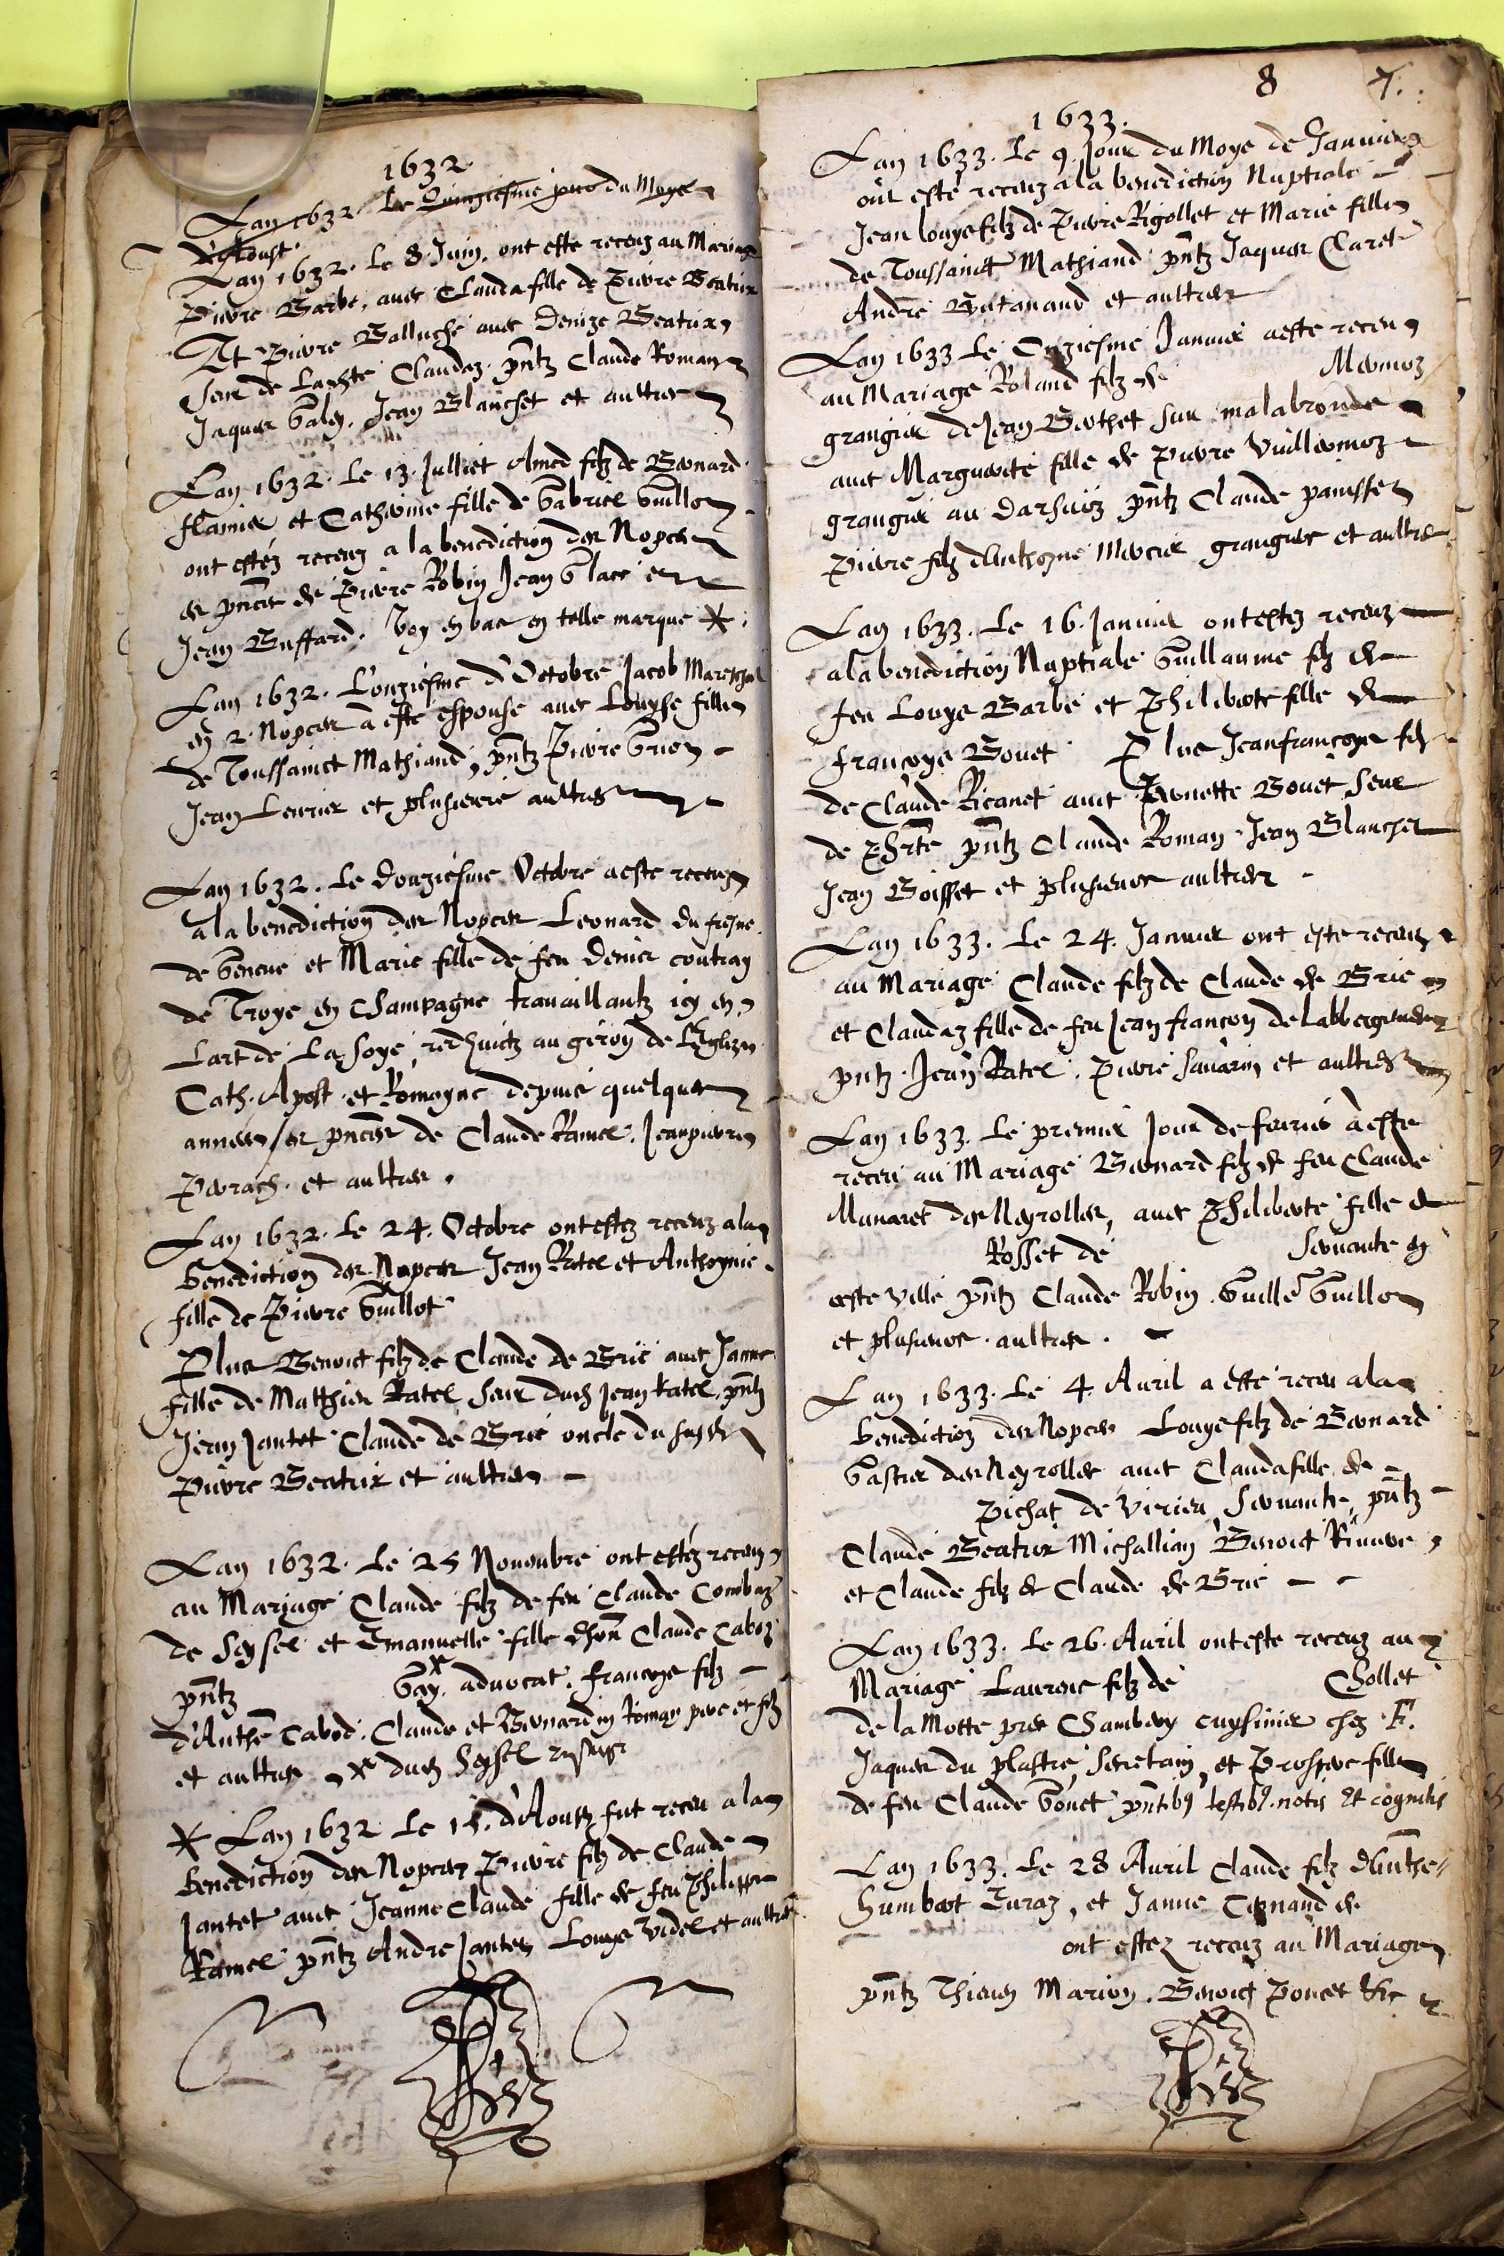 1632.
Lan 1632. Le Quinziesme jour du Moys
d'Aoust.
Lan 1632. Le 8. Juin. ont este receuz au Mariage
Pierre Barbe, avec Clauda fille de Pierre Beatrix
Et Pierre Balluche avec Denize Beatrix
seur de Ladite Claudaz. pntz Claude Roman
Jaques Galey. Jean Blanchet et aultres
Lan 1632. Le 13. Julliet Amed filz de Bernard
flamier et Catherine fille de Gabriel Guillon
ont estéz receuz a la benediction des Nopces
es pnces de Pierre Robin Jean Glace et
Jean Buffard. Voy en bas en telle marque *.
Lan 1632. L'onziesme d'Octobre Jacob Mareschal
en 2. Nopces à este espouse avec Louyse fille
de Toussainct Mathiand, pntz Pierre Grion
Jean Levrier et plusieurs aultres
Lan 1632. Le douziesme Octobre a este receuz
a la benediction des Nopces Leonard du fresne
de Geneve et Marie fille de feu Denis coutray
de Troye en Champagne travaillantz icy en
Lart de La soye, reduictz au giron de L'Eglize
Cath. Apost. et Romayne depuis quelques
annees / es pnces de Claude Ramel. Jeanpierre
Perrach. et aultres.
Lan 1632. Le 24. Octobre ont estez receuz a la
benediction des Nopces Jean Ratel et Anthoynie
fille de Pierre Guillot
Plus Benoict filz de Claude de Brie avec Janne
fille de Matthieu Ratel seur dudit Jean Ratel, pntz
Jean Jantet Claude de Brie oncle du susdit
Pierre Beatrix et aultres
Lan 1632. Le 25 Novembre ont estéz receuz
au Mariage Claude filz de feu Claude Combaz
de Seysel et Emanuelle fille d'hon Claude Cabod
pntz Gay x advocat. francoys filz
d'Anthe Cabod. Claude et Bernardin Roman pere et filz
et aultres, x dudit Seysel
* Lan 1632 Le 15. d'Aoust fut receu a la
benediction des Nopces Pierre filz de Claude
Jantet avec Jeanne Claude fille de feu Philippe
Ramel pntz Andre Jantet Louys Videl et aultres
8 7.
1633.
Lan 1633. Le 9. Jour du Moys de Janvier
ont esté receuz a la benediction Nuptiale
Jean louys filz de Pierre Rigollet et Marie fille
de Toussainct Mathiand pntz Jaques Claret
André et aultres
Lan 1633 Le Onziesme Janvier a este receu
au Mariage Roland filz de Mermoz
grangier de Jean Berthet sur malabronde
avec Marguerite fille de Pierre Vuillermoz
grangier au pntz Claude panisset
Pierre filz d'Anthoyne Mercier grangier et aultres
Lan 1633. Le 16. Janvier ont estez receuz
a la benediction Nuptiale Guillaume filz de
feu Louys Barbe et Philiberte fille de
francoys Bouet Plus Jeanfrancoys filz
de Claude Ricanet avec Pernette Bouet seur
de Phrte pntz Claude Roman. Jean Blanchet
Jean Boisset et plusieurs aultres.
Lan 1633. Le 24. Janvier ont este receuz
au Mariage Claude filz de Claude de Brie
et Claudaz fille de feu Jean francon de Labbergement
pntz Jean Ratel. Pierre Savarin et aultres
Lan 1633. Le premier Jour de fevrier à este
receu au Mariage Bernard filz de feu Claude
Munaret des Neyrolles, avec Philiberte fille de
Rosset de servante en
ceste ville pntz Claude Robin. Guille Guillon
et plusieurs aultres.
Lan 1633. Le 4. Avril a este receu a la
benediction des Nopces Louys filz de Bernard
Gastier des Neyrolles avec Clauda fille de
Pichat de Virieu servante, pntz
Claude Beatrix Michallian Benoict
et Claude filz de Claude de Brie
Lan 1633. Le 26. Avril ont este receuz au
Mariage Laurens filz de Chollet
de la Motte pres Chambery cuysinier chez F.
Jaques du plastre secretain, et Prospere fille
de feu Claude Gouet pntibus testibus notis et cognitis
Lan 1633. Le 28 Avril Claude filz d'Anthe
humbert Juraz, et Janne de
ont estez receuz au Mariage
pntz Marion. Benoict Poncet &c